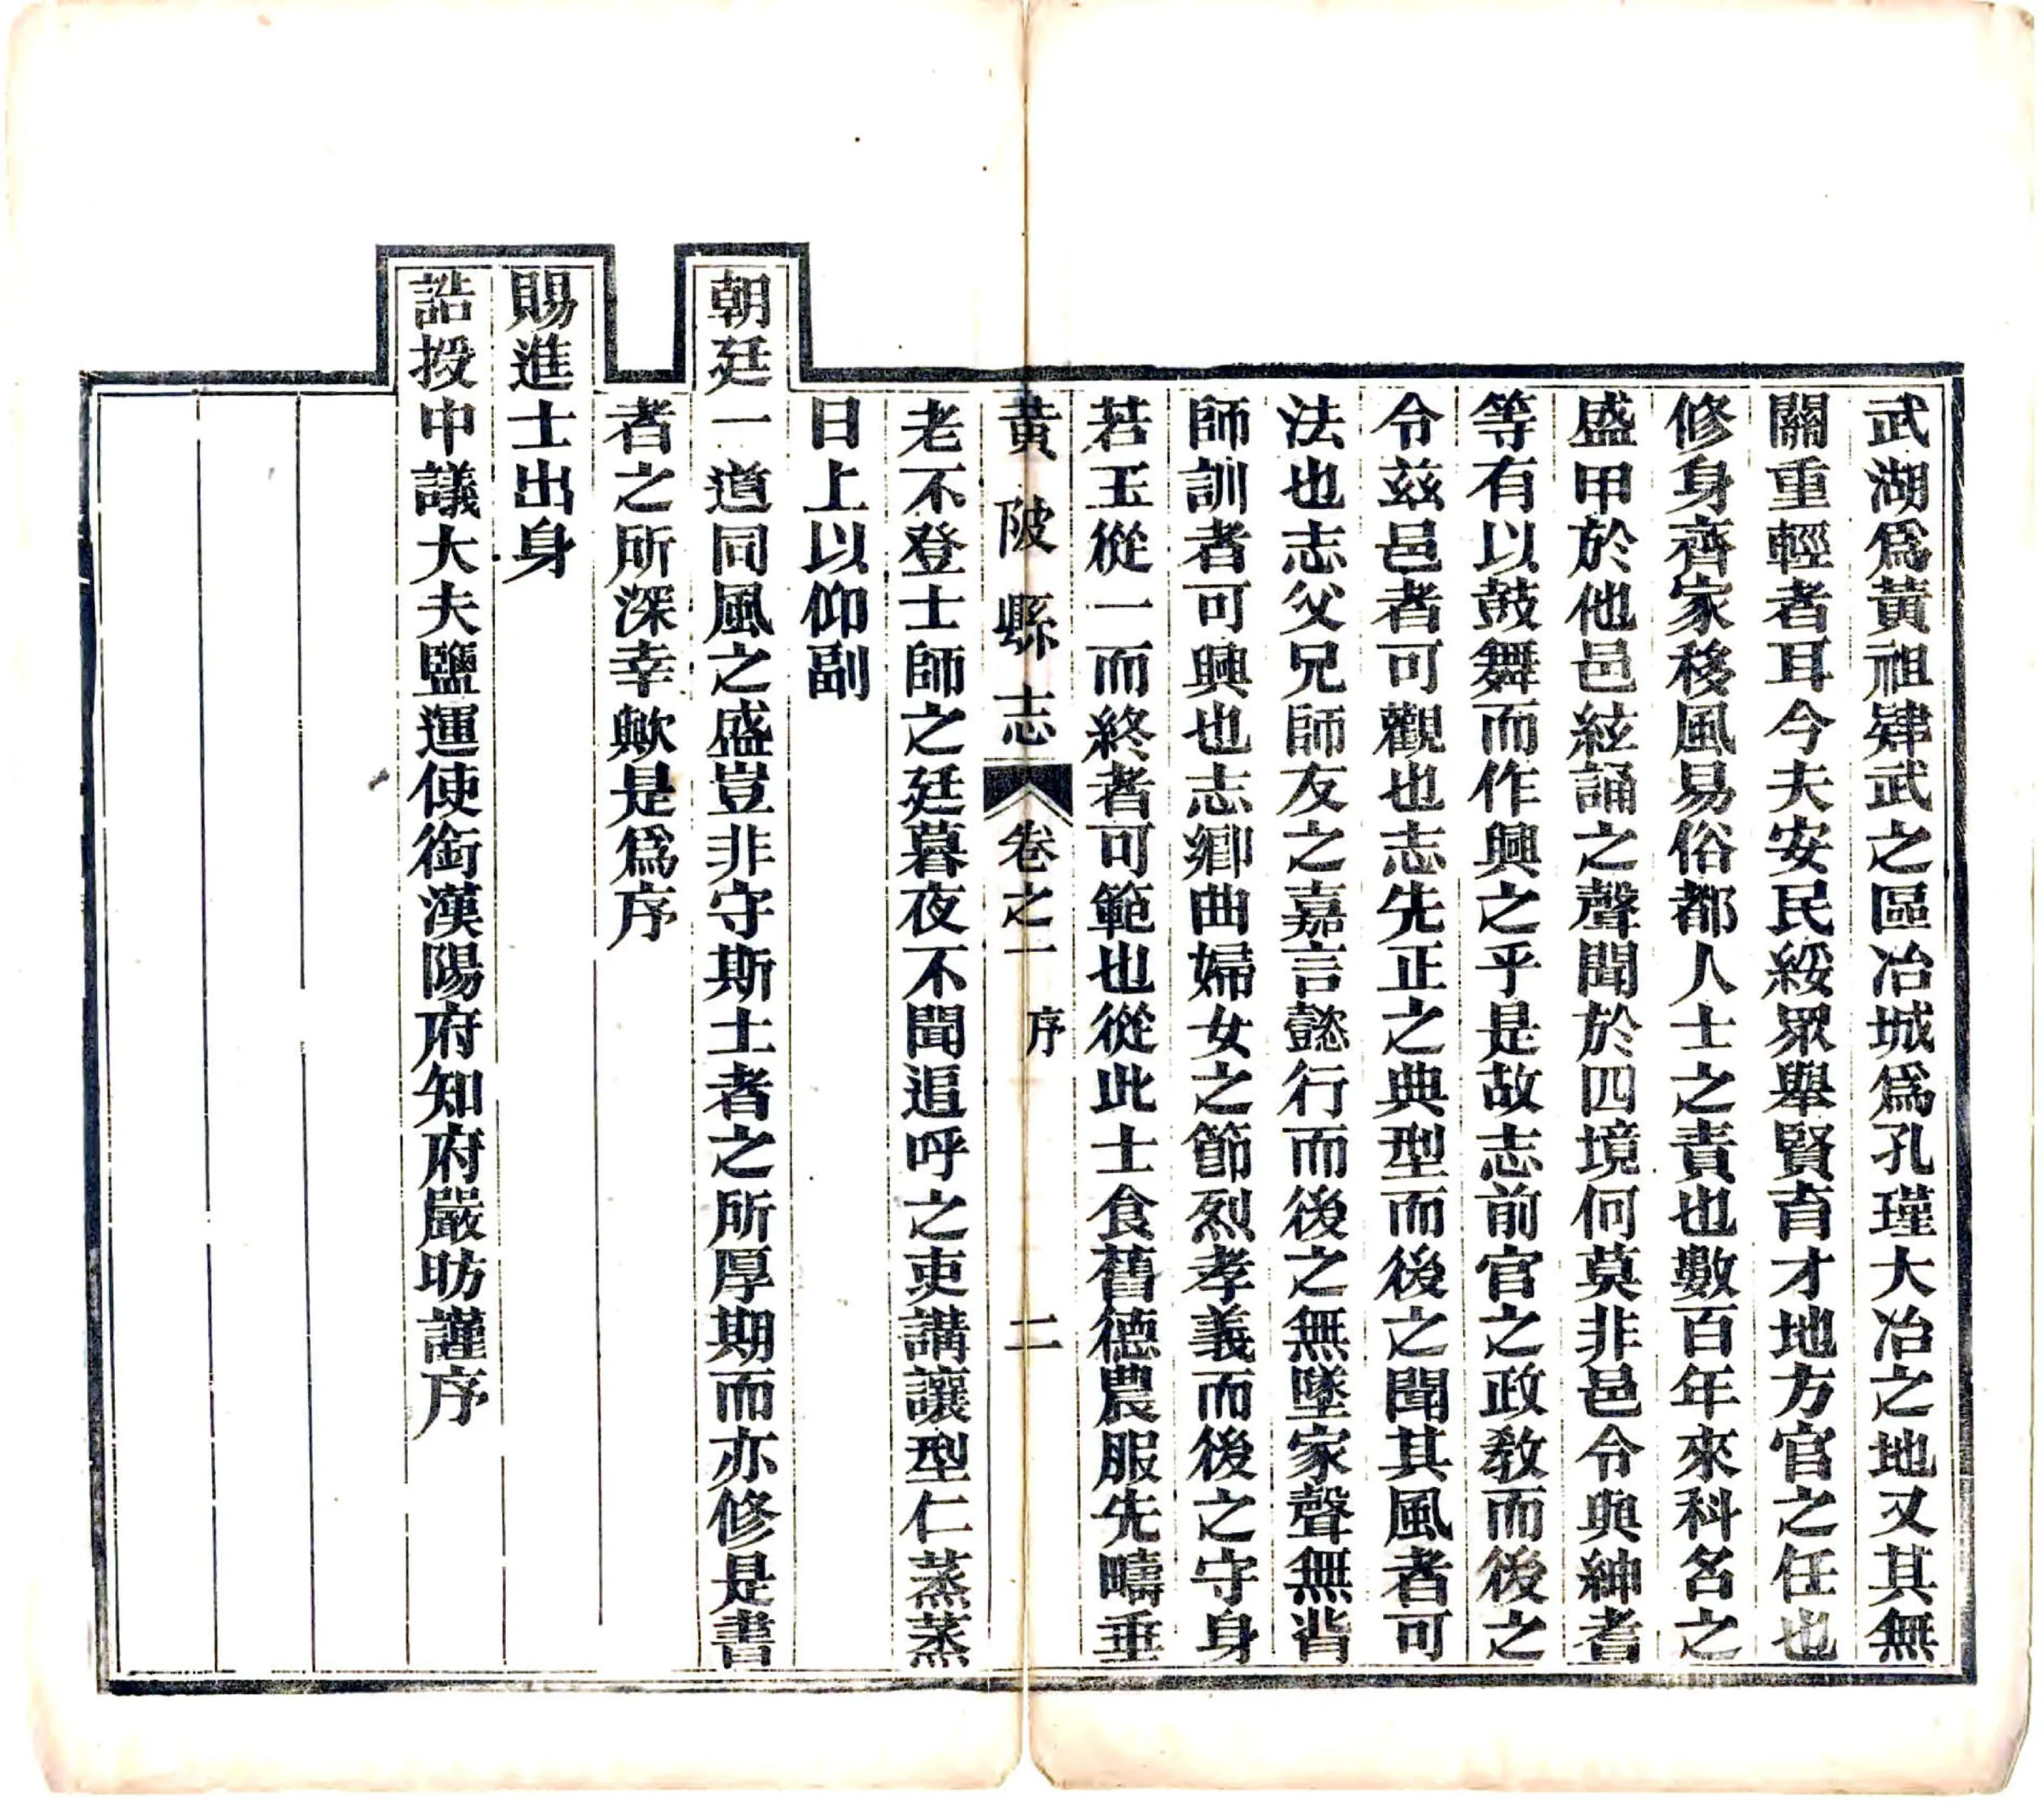 武湖爲黃祖肄武之區冶城爲孔瑾大冶之地又其無
關重輕者耳今夫安民綏眾舉賢育才地方官之任也
修身齊家移風易俗都人士之責也數百年來科名之
盛甲於他邑絃誦之聲聞於四境何莫非邑令與紳耆
等有以鼓舞而作興之乎是故志前官之政敎而後之
令茲邑者可觀也志先正之典型而後之聞其風者可
法也志父兄師友之嘉言懿行而後之無墜家聲無背
師訓者可興也志鄉曲婦女之節烈孝義而後之守身
若玉從一而終者可範也從此士食舊德農服先疇垂
黃陂縣志 卷之一 序 二
老不登士師之廷暮夜不聞追呼之吏講讓型仁蒸蒸
日上以仰副
朝廷一道同風之盛豈非守斯土者之所厚期而亦修是書
者之所深幸歟是爲序
賜進士出身
誥授中議大夫鹽運使銜漢陽府知府嚴昉謹序